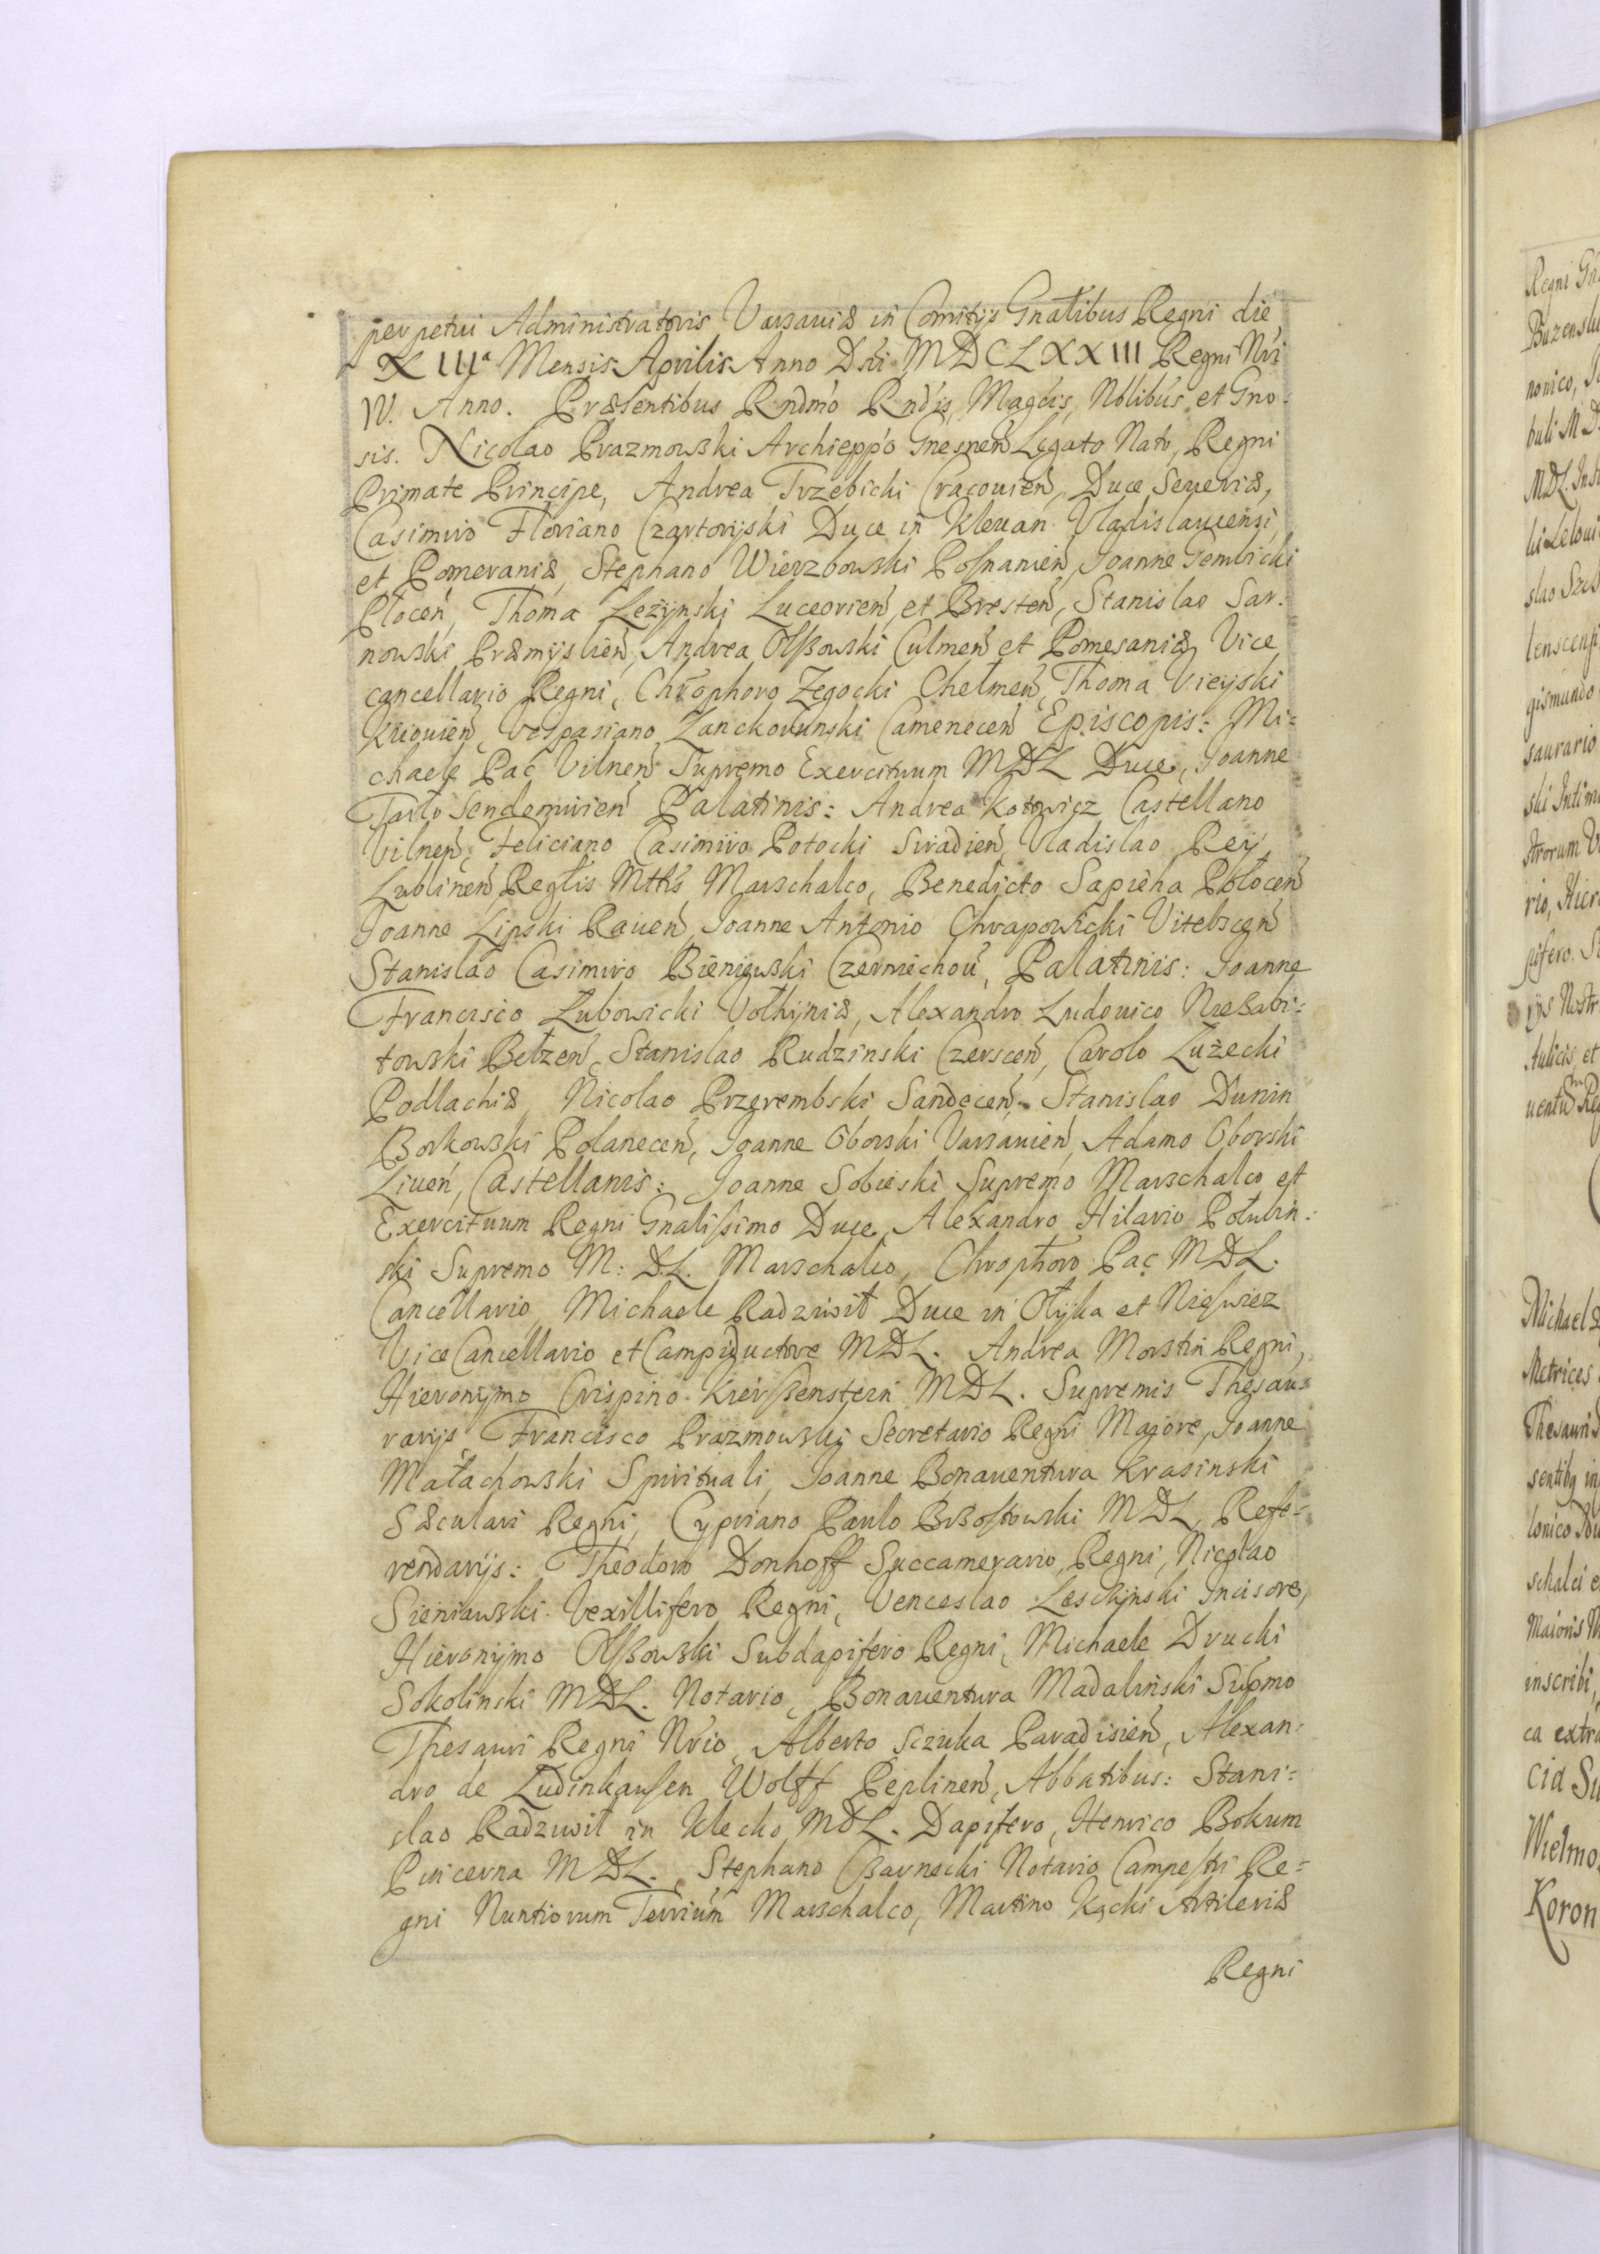 perpetui Administratoris Varsaviæ in Comitijs Gnalibus Regni die
XIIIa Mensis Aprilis Anno Dni MDCLXXIII Regni Nri
IV. Anno. Præsentibus Rndmo Rndis, Magcis, Nblibus et Gno-
sis. Nicolao Prazmowski Archieppo Gnesnen Legato Nato, Regni
Primate Principe, Andrea Trzebicki Cracouien, Duce Seueriæ,
Casimiro Floriano Czartoryski Duce in Klewan Vladislauiensi
et Pomeraniæ, Stephano Wierzbowski Posnanien, Joanne Gembicki
Plocen, Thoma Leżynski Luceorien, et Bresten, Stanislao Sar-
nowski Præmyslien, Andrea Olszowski Culmen et Pomesaniæ, Vice
cancellario Regni, Chrophoro Zegocki Chełmen, Thoma Vieyski
Kiiouien, Vespasiano Lanckorunski Camenecen Episcopis: Mi-
chaele Pac Vilnen, Supremo Exercituum MDL Duce, Joanne
Tarło Sendomirien Palatinis: Andrea Kotowicz Castellano
Vilnen, Feliciano Casimiro Potocki Siradien, Vladislao Rey
Lublinen Reglis Mtis Marschalco, Benedicto Sapieha Połocen
Joanne Lipski Rauen, Joanne Antonio Chrapowicki Vitebscen
Stanislao Casimiro Bieniewski Czerniechou, Palatinis: Joanne
Francisco Łubowicki Vołhyniæ, Alexandro Ludouico Niezabi-
towski Bełzen, Stanislao Rudzinski Czerscen, Carolo Łużecki
Podlachiæ, Nicolao Przerembski Sandecen, Stanislao Dunin
Borkowski Polanecen, Joanne Oborski Varsauien, Adamo Oborski
Liuen, Castellanis: Joanne Sobieski Supremo Marschalco et
Exercituum Regni Gnalissimo Duce, Alexandro Hilario Połubin-
ski Supremo M: D.L. Marschalco, Chrophoro Pac MDL.
Cancellario, Michaele Radziwił Duce in Ołyka et Nieswiez
Vice Cancellario et Campiductore MDL. Andrea Morstin Regni,
Hieronymo Crispino Kirszenstein MDL. Supremis Thesau-
rarijs, Francisco Prazmowski Secretario Regni Maiore, Joanne
Małachowski Spirituali, Joanne Bonauentura Krasinski
Sæculari Regni, Cypriano Paulo Brzostowski MDL, Refe-
rendarijs: Theodoro Donhoff Succamerario Regni, Nicolao
Sieniawski Vexillifero Regni, Venceslao Leszczynski Incisore,
Hieronymo Olszowski Subdapifero Regni, Michaele Drucki
Sokolinski MDL. Notario, Bonauentura Madalinski Supmo
Thesauri Regni Nrio, Alberto Sczuka Paradisien, Alexan-
dro de Ludinkausen Wolff Peplinen, Abbatibus: Stani-
slao Radziwił in Klecko MDL. Dapifero, Henrico Bokum
Pincerna MDL. Stephano Czarnecki Notario Campestri Re-
gni Nuntiorum Terrium Marschalco, Martino Kącki Artileriæ
Regni